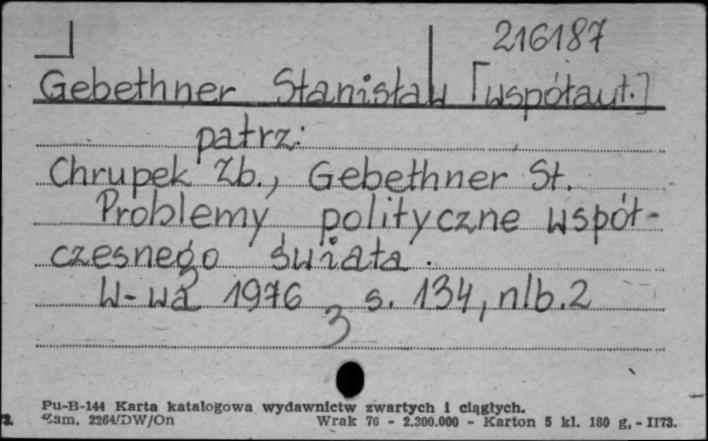 216187
Gebethner Stanisław [współaut.]
patrz:
Chrupek Zb., Gebethner St.
Problemy polityczne współ-
czesnego świata.
W-wa 1976 s. 134, nlb. 2
3
Pu-B-144 Karta katalogowa wydawnictw zwartych i ciągłych.
Zam. 2264/DW/On Wrak 76 - 2.300.000 - Karton 5 kl. 180 g, - II73.